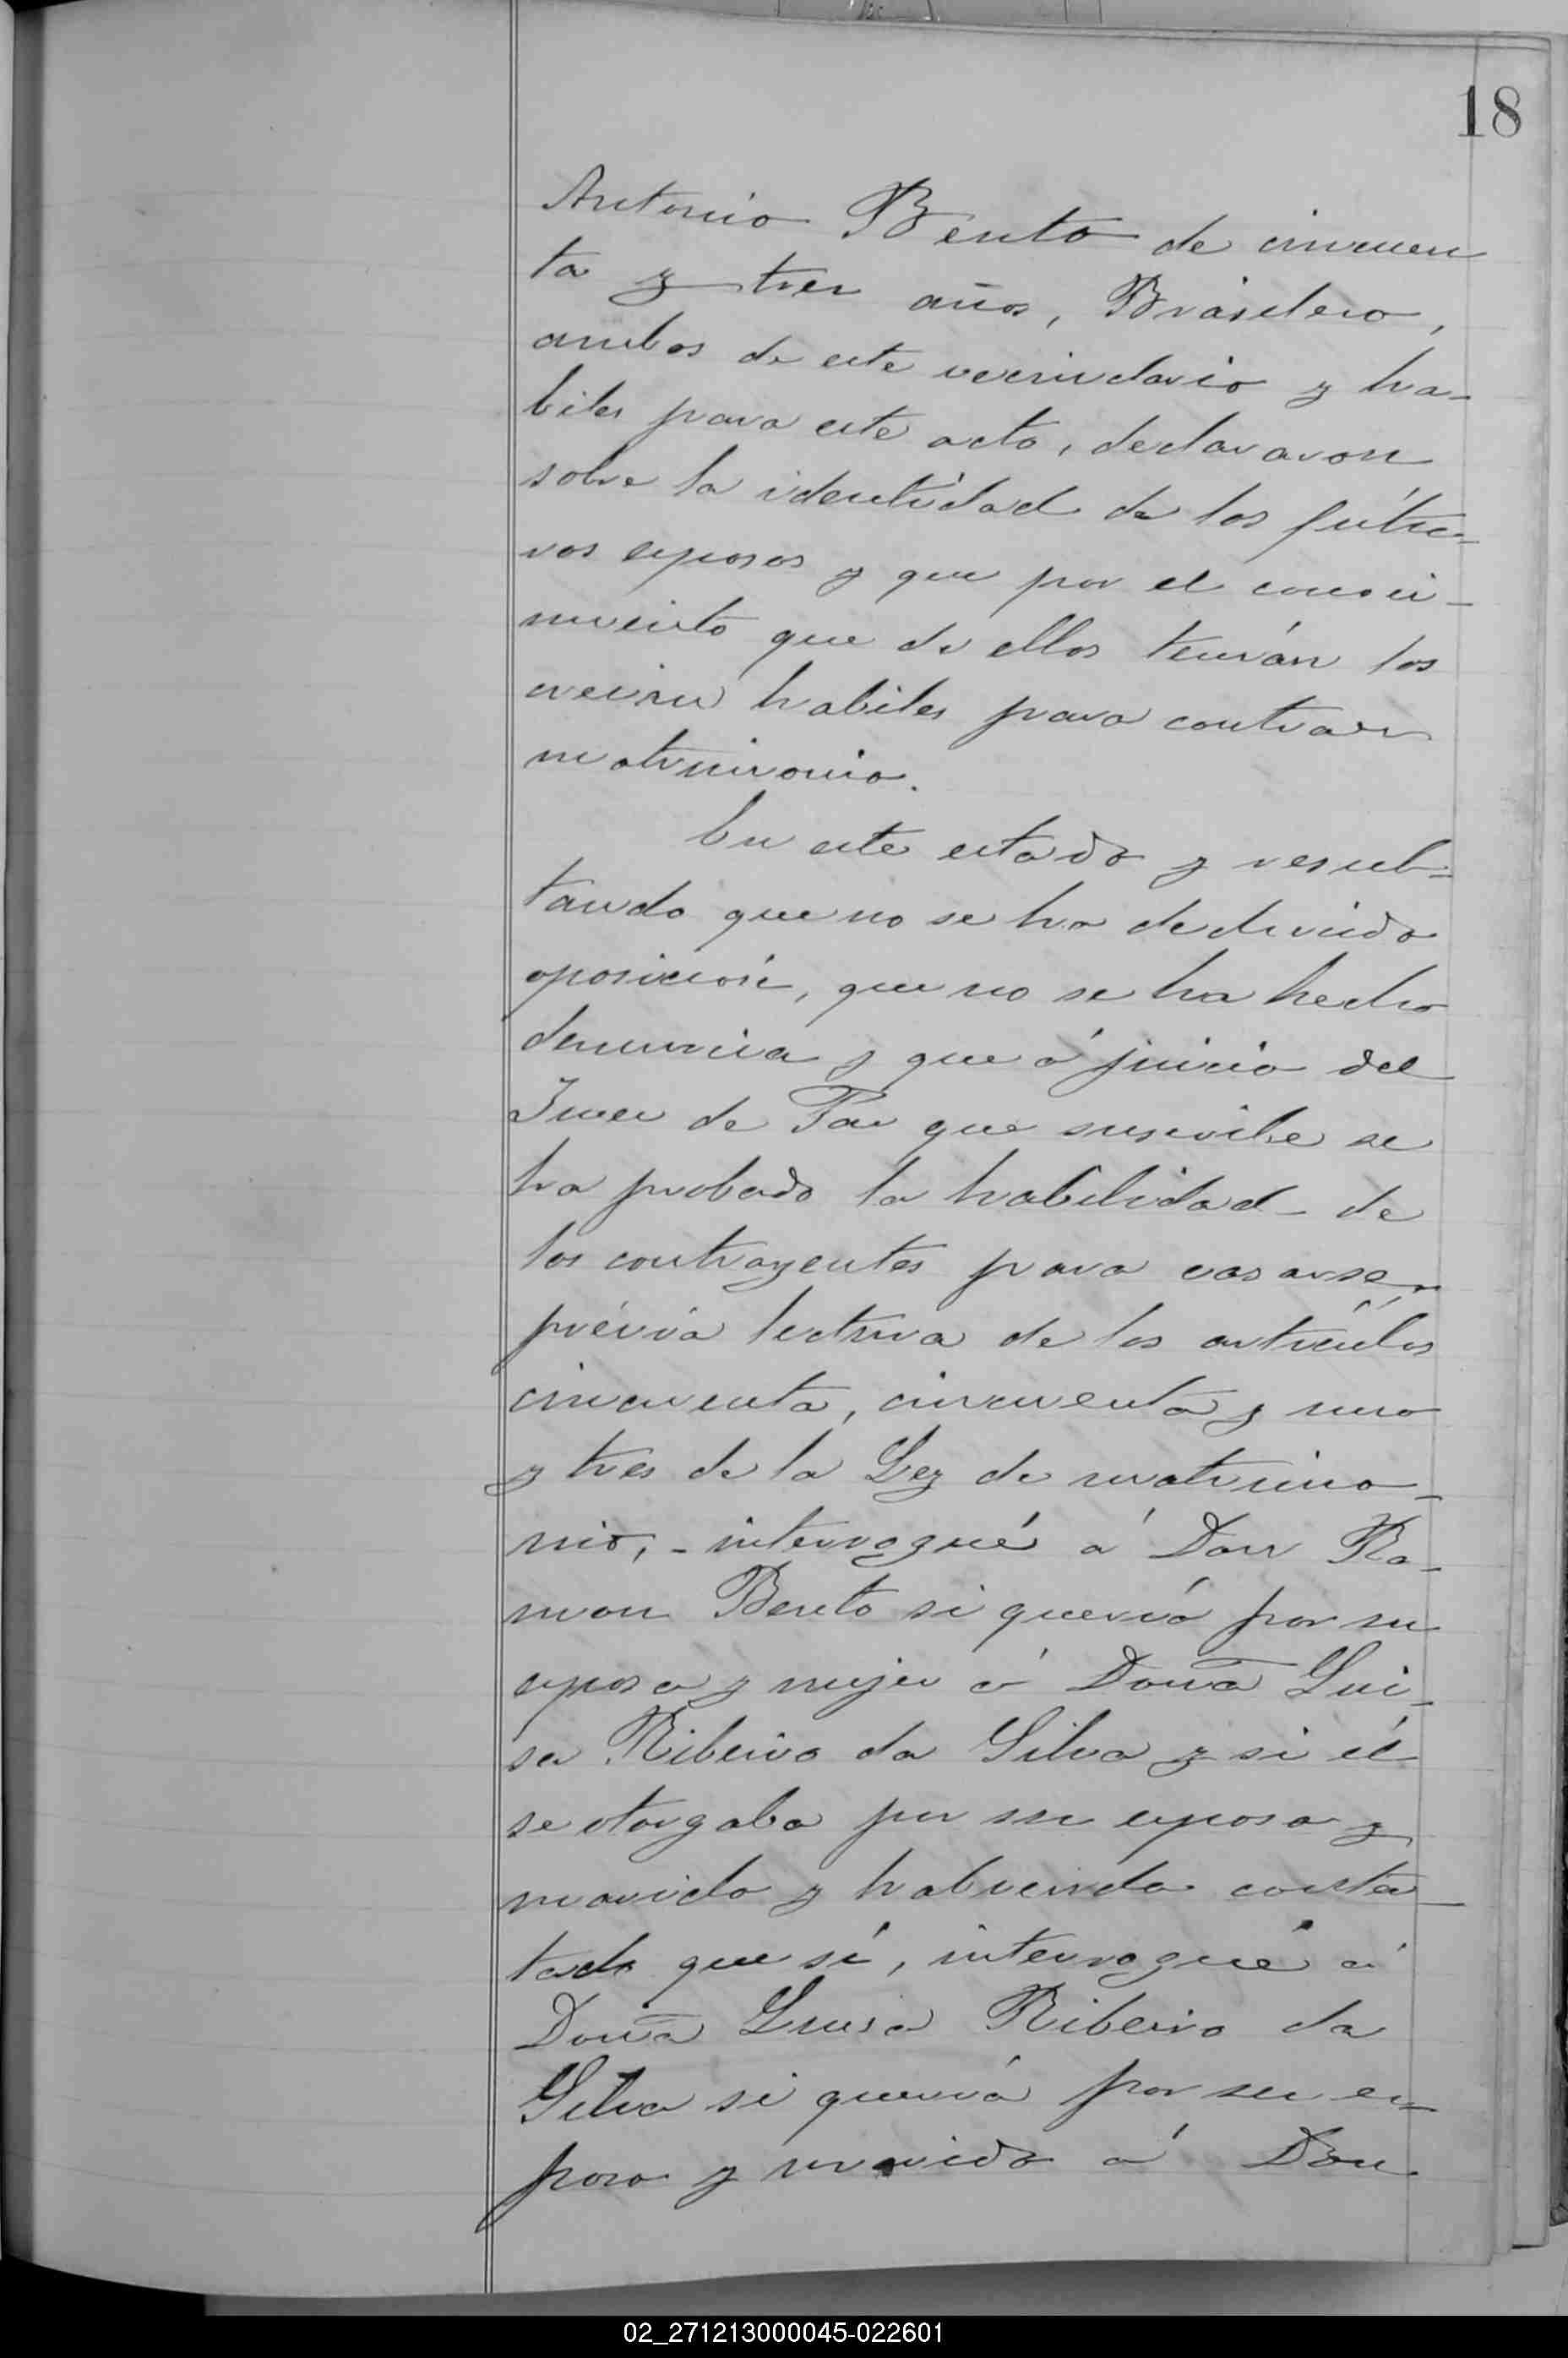 18
Antonio Bento de cincuen
ta y tres años, Brasilero,
ambos de este vecindario y ha-
biles para este acto, declararon
sobre la identidad de los futu-
ros esposos y que por el conoci-
miento que de ellos tenían los
creían habiles para contraer
matrimonio.
En este estado y resul-
tando que no se ha deducido
oposición, que no se ha hecho
denuncia y que á juicio del
Juez de Paz que suscribe se
ha probado la habilidad de
los contrayentes para casarse,
prévia lectura de los artículos
cincuenta, cincuenta y uno
y tres de la Ley de matrimo-
nio, - interrogué á Don Ra-
mon Bento si quería por su
esposa y mujer á Doña Lui-
sa Ribeiro da Silva y si él
se otorgaba por su esposo y
marido y habiendo contes-
tado que sí, interrogué á
Doña Luisa Ribeiro da
Silva si quería por su es-
poso y marido á Don
02_271213000045-022601